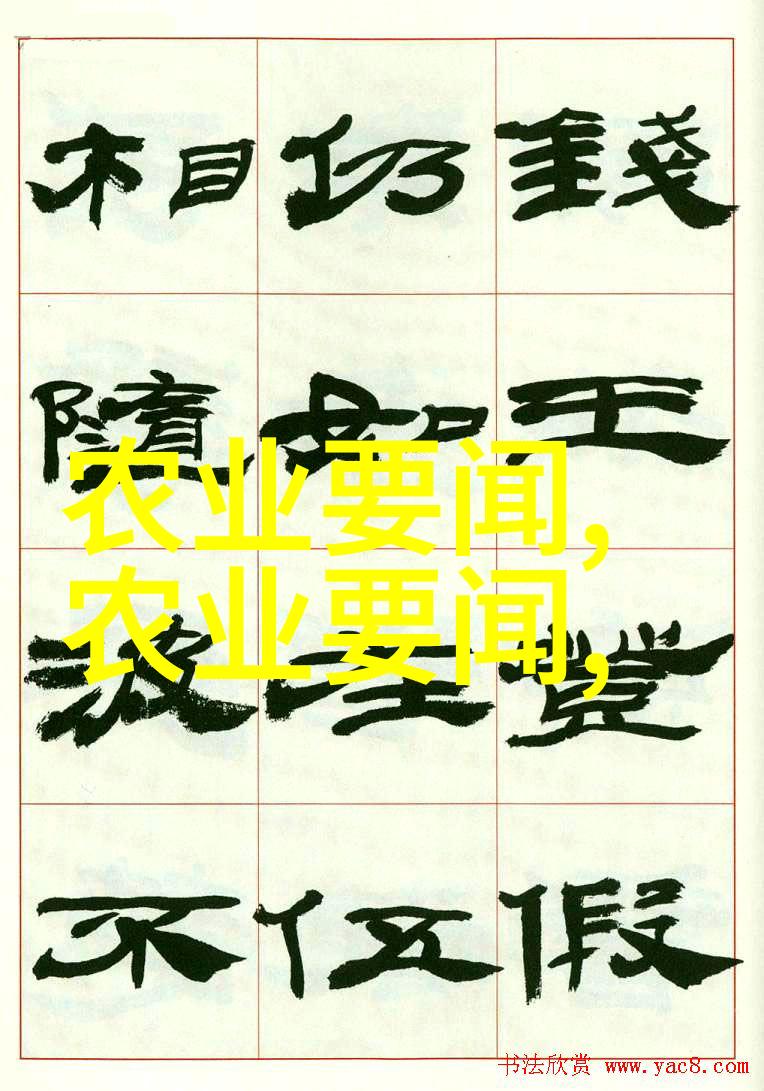 錢王登假
仍如在伍
相隨波不
农业要闻,
农业要闻,
书法欣赏 www.yac8.com